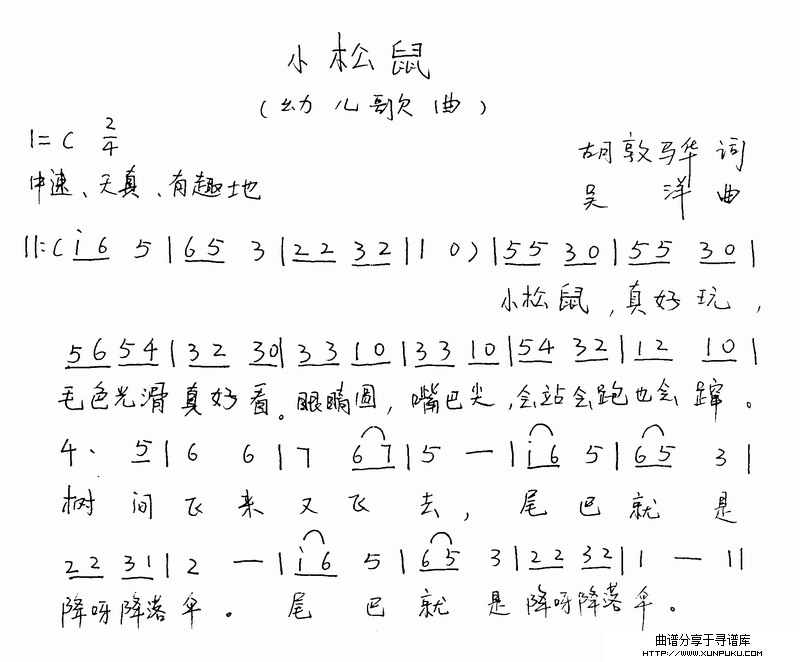 小松鼠
（幼儿歌曲）
1=C 2/4
胡敦骅 词
中速、天真、有趣地
吴 洋 曲
||:( i̇6 5 | 65 3 | 22 32 | 1 0 ) | 55 30 | 55 30 |
小松鼠，真好玩，
56 54 | 32 30 | 33 10 | 33 10 | 54 32 | 12 10 |
毛色光滑真好看。眼睛圆，嘴巴尖，会站会跑也会蹿。
4· 5 | 6 6 | 7 67 | 5 — | i̇6 5 | 65 3 |
树间飞来又飞去，尾巴就是
22 31 | 2 — | i̇6 5 | 65 3 | 22 32 | 1 — ||
降呀降落伞。尾巴就是降呀降落伞。
曲谱分享于寻谱库
HTTP://WWW.XUNPUKU.COM